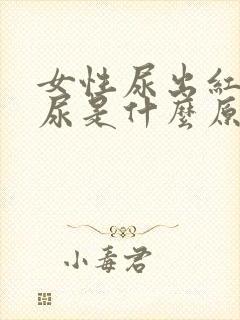 女性尿出紅
尿是什麼原
小毒君